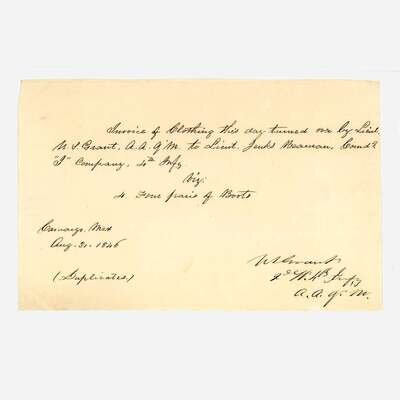 Invoice of Clothing this day turned over by Lieut.
U. S. Grant, A. A. Q. M. to Lieut. Jenks Beaman, Comd'g
"I" Company, 4th Infy.
Viz:
4 Four pairs of Boots
Camargo, Mex
Aug. 31. 1846
(Duplicates)
U S Grant
2d Lt. 4th Infy
A. A. Q. M.